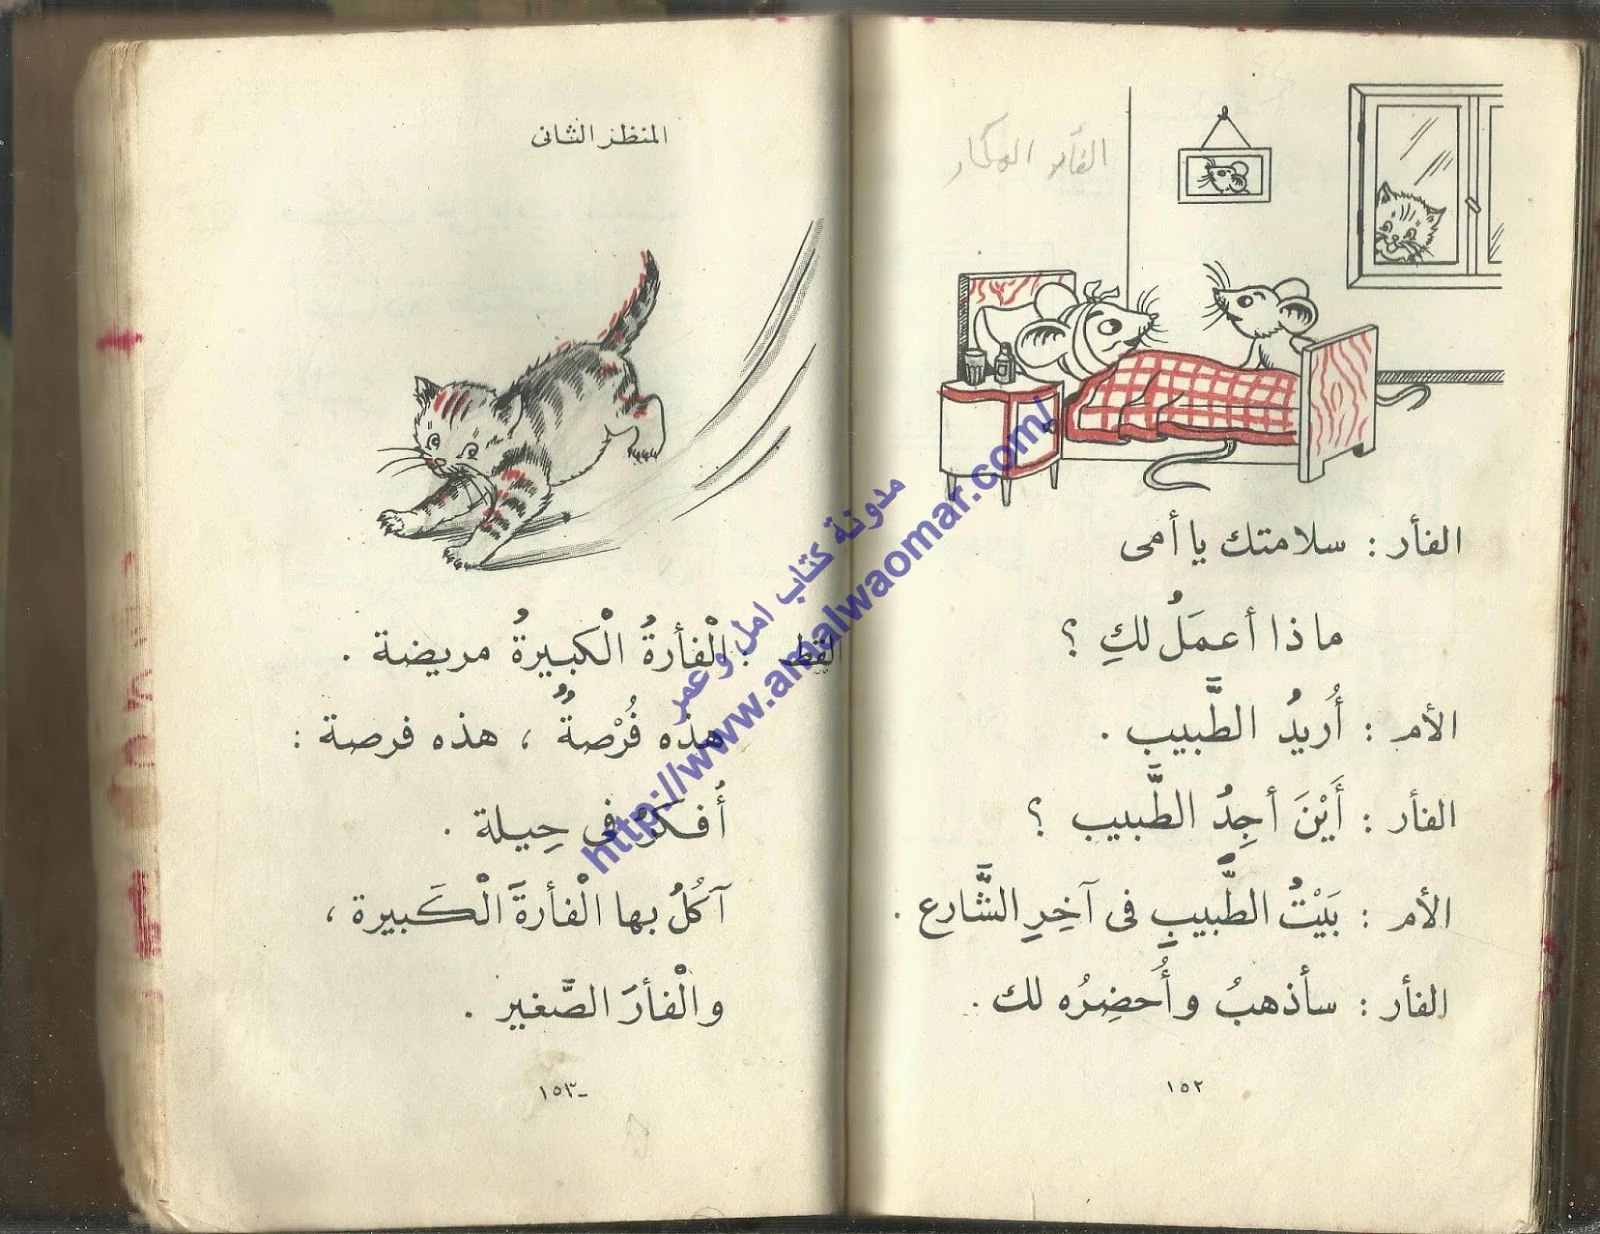 الفأر المكار
الفأر : سلامتك يا أمى
ماذا أعمَلُ لكِ ؟
الأم : أُريدُ الطَّبيب .
الفأر : أَيْنَ أجِدُ الطَّبيب ؟
الأم : بَيْتُ الطَّبيبِ فى آخِرِ الشَّارع .
الفأر : سأذهبُ وأُحضِرُه لك .
١٥٢
المنظر الثانى
القط : الْفأرةُ الْكبيرةُ مريضة .
هذه فُرْصةٌ ، هذه فرصة :
أُفكرُ فى حِيلة .
آكُلُ بها الْفأرةَ الْكَبيرة ،
والْفأرَ الصَّغير .
١٥٣
مدونة كتاب امل وعمر
http://www.amalwaomar.com/